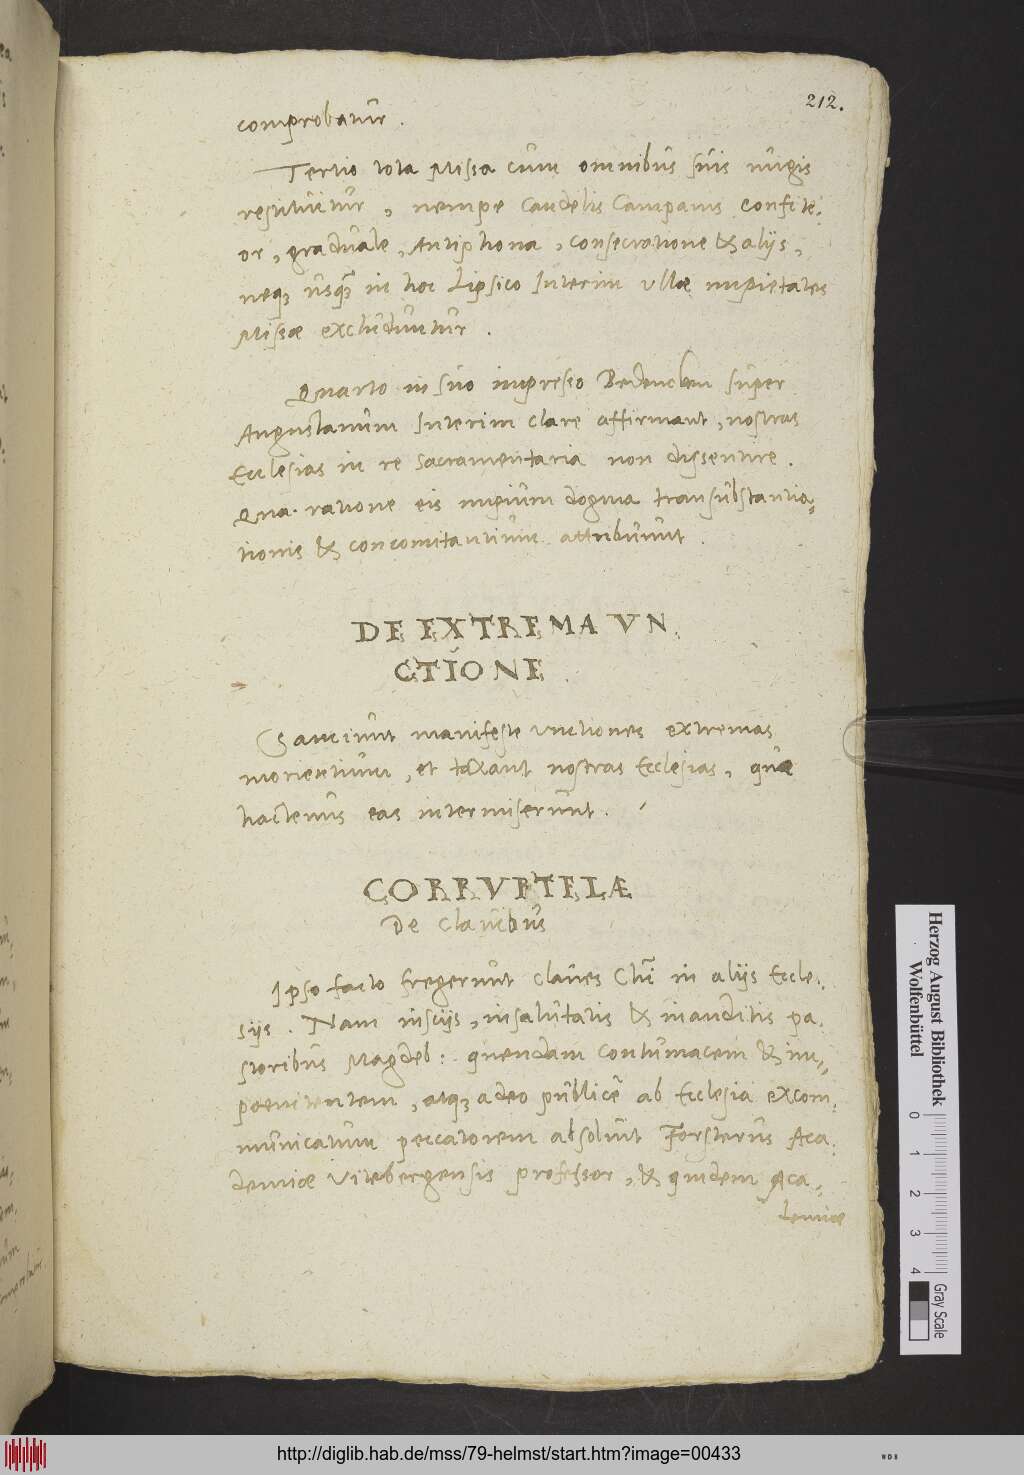 212.
comprobatur.
Tertio tota Missa cum omnibus suis nugis
restituitur, nempe Candelis Campanis confite-
or, graduale, Antiphona, consecratione & alijs,
neq3 usquã in hoc Lipsico Interim ullæ impietates
Missæ excluduntur.
Quarto in suo impresso Bedencken super
Augustanum Interim clare affirmant, nostras
Ecclesias in re sacramentaria non dissentire.
Qua ratione eis impium dogma transubstantia-
tionis & concomitantium attribuunt.
DE EXTREMA VN
CTIONE
Sanciunt manifeste unctiones extremas
morientium, et taxant nostras Ecclesias, quæ
hactenus eas intermiserunt.
CORRVPTELÆ
De Clavibus
Ipso facto fregerunt claves Chri in alijs Eccle-
sijs. Nam inscijs, insalutatis & inauditis pa-
storibus Magdeb: quendam contumacem & im-
poenitentem, atq3 adeo publicè ab Ecclesia excom-
municatum peccatorem absoluit Forsterus Aca
demiæ Vitebergensis professor, & quidem Aca-
demiæ
Herzog August Bibliothek
Wolfenbüttel
0 1 2 3 4
Gray Scale
http://diglib.hab.de/mss/79-helmst/start.htm?image=00433